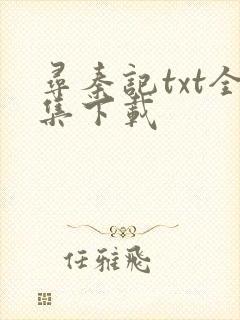 尋秦記txt全
集下載
任雅飛